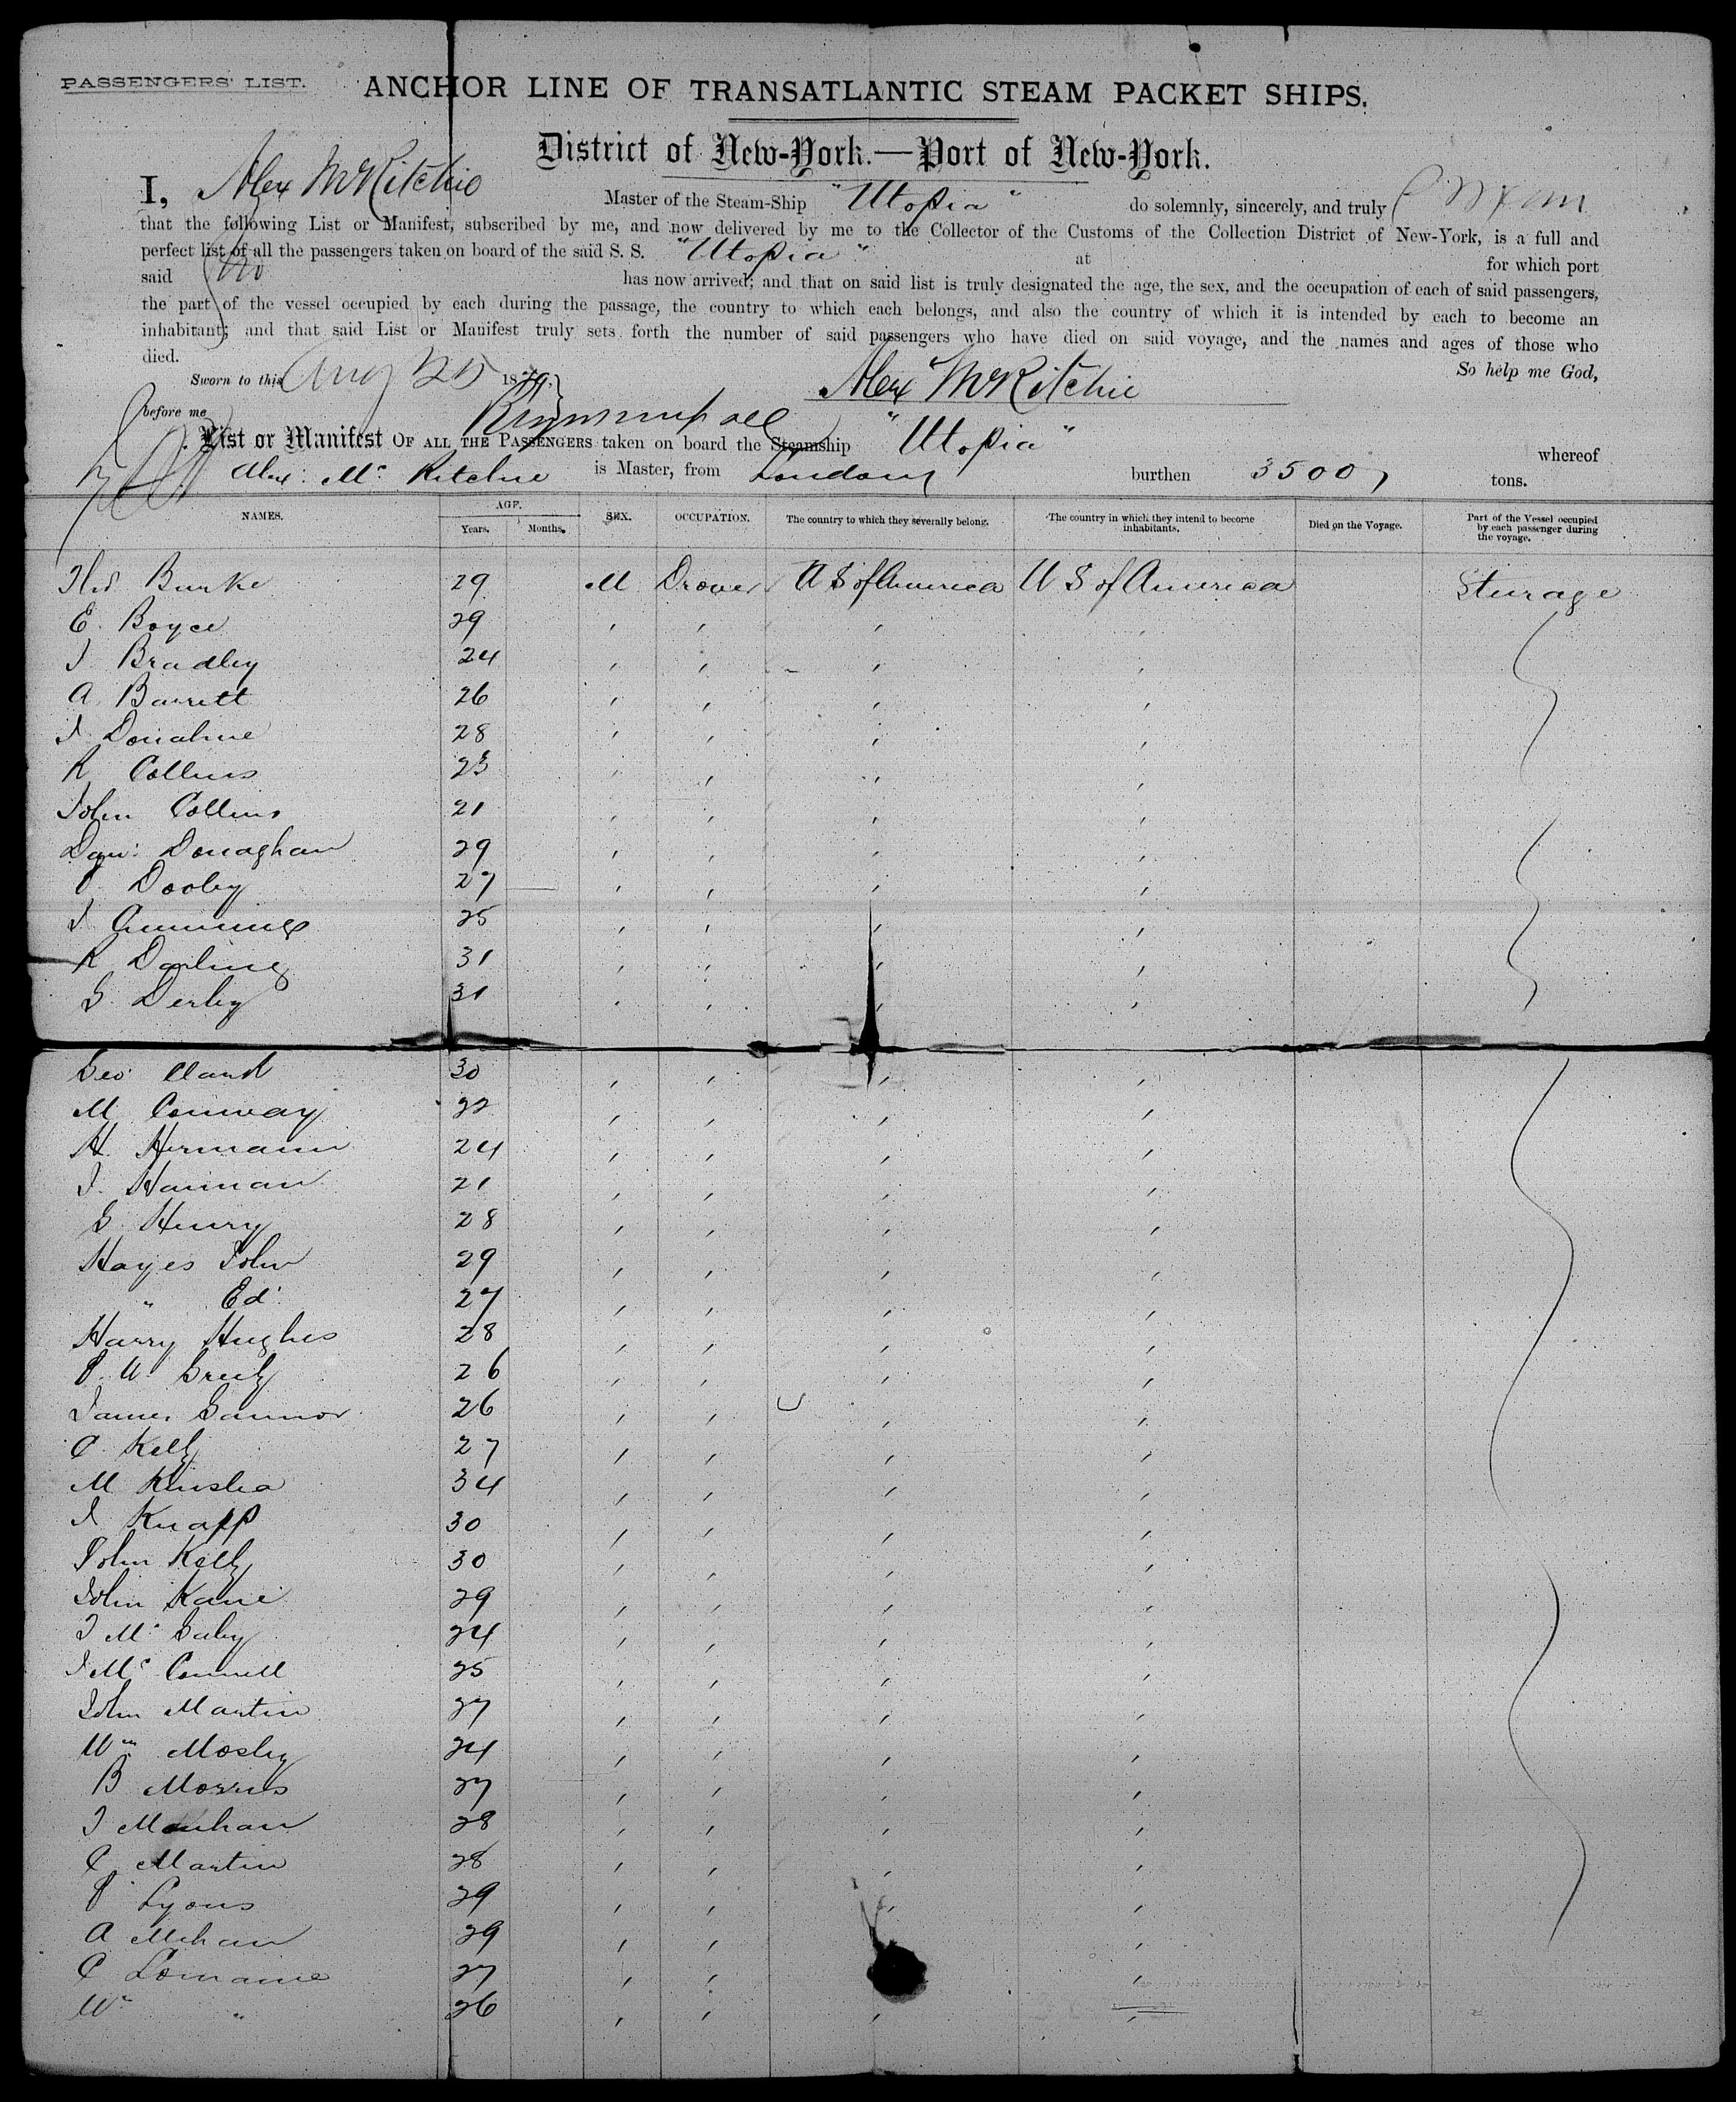 PASSENGERS' LIST.
ANCHOR LINE OF TRANSATLANTIC STEAM PACKET SHIPS.
District of New-York.—Port of New-York.
I, Alex McRitchie Master of the Steam-Ship "Utopia" do solemnly, sincerely, and truly
that the following List or Manifest, subscribed by me, and now delivered by me to the Collector of the Customs of the Collection District of New-York, is a full and
perfect list of all the passengers taken on board of the said S. S. "Utopia" at for which port
said has now arrived; and that on said list is truly designated the age, the sex, and the occupation of each of said passengers,
the part of the vessel occupied by each during the passage, the country to which each belongs, and also the country of which it is intended by each to become an
inhabitant; and that said List or Manifest truly sets forth the number of said passengers who have died on said voyage, and the names and ages of those who
died. So help me God,
Sworn to this Aug 25 1879. Alex McRitchie
before me
List or Manifest OF ALL THE PASSENGERS taken on board the Steamship "Utopia" whereof
Alex: Mc Ritchie is Master, from London burthen 3500, tons.
NAMES. AGE. Years. Months. SEX. OCCUPATION. The country to which they severally belong. The country in which they intend to become inhabitants. Died on the Voyage. Part of the Vessel occupied by each passenger during the voyage.
Thos Burke 29 M Drover U S of America U S of America Steerage
E. Boyce 29 " " " "
J Bradley 24 " " " "
A. Barrett 26 " " " "
J. Donahue 28 " " " "
R Collins 23 " " " "
John Collins 21 " " " "
Dan: Donaghan 29 " " " "
P. Dooley 27 " " " "
J Cummings 25 " " " "
R Darling 31 " " " "
G. Derby 31 " " " "
Geo 30 " " " "
M Conway 22 " " " "
H. Hermann 24 " " " "
J. Hannan 21 " " " "
G. Henry 28 " " " "
Hayes John 29 " " " "
" Ed. 27 " " " "
Harry Hughes 28 " " " "
P. W. 26 " " " "
James Gannor 26 " " " "
C. Kelly 27 " " " "
M Kinslea 34 " " " "
J. Knapp 30 " " " "
John Kelly 30 " " " "
John Kane 29 " " " "
J Mc 24 " " " "
J Mc Connell 25 " " " "
John Martin 27 " " " "
Wm Mosley 24 " " " "
B Morris 27 " " " "
J Monhan 28 " " " "
C. Martin 28 " " " "
P Lyons 29 " " " "
A Mehan 29 " " "
C Lorraine 27 " " "
Wm " 26 " " " "